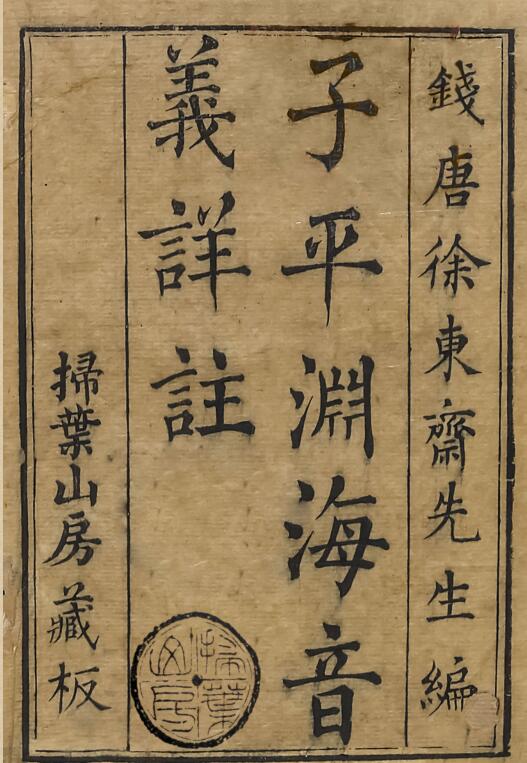 錢唐徐東齋先生編
子平淵海音
義詳註
掃葉山房藏板
掃葉山房